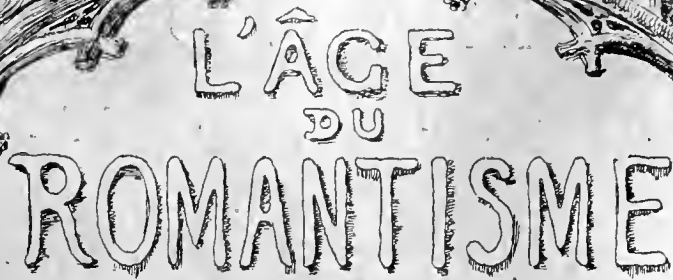 L'ÂGE
DU
ROMANTISME